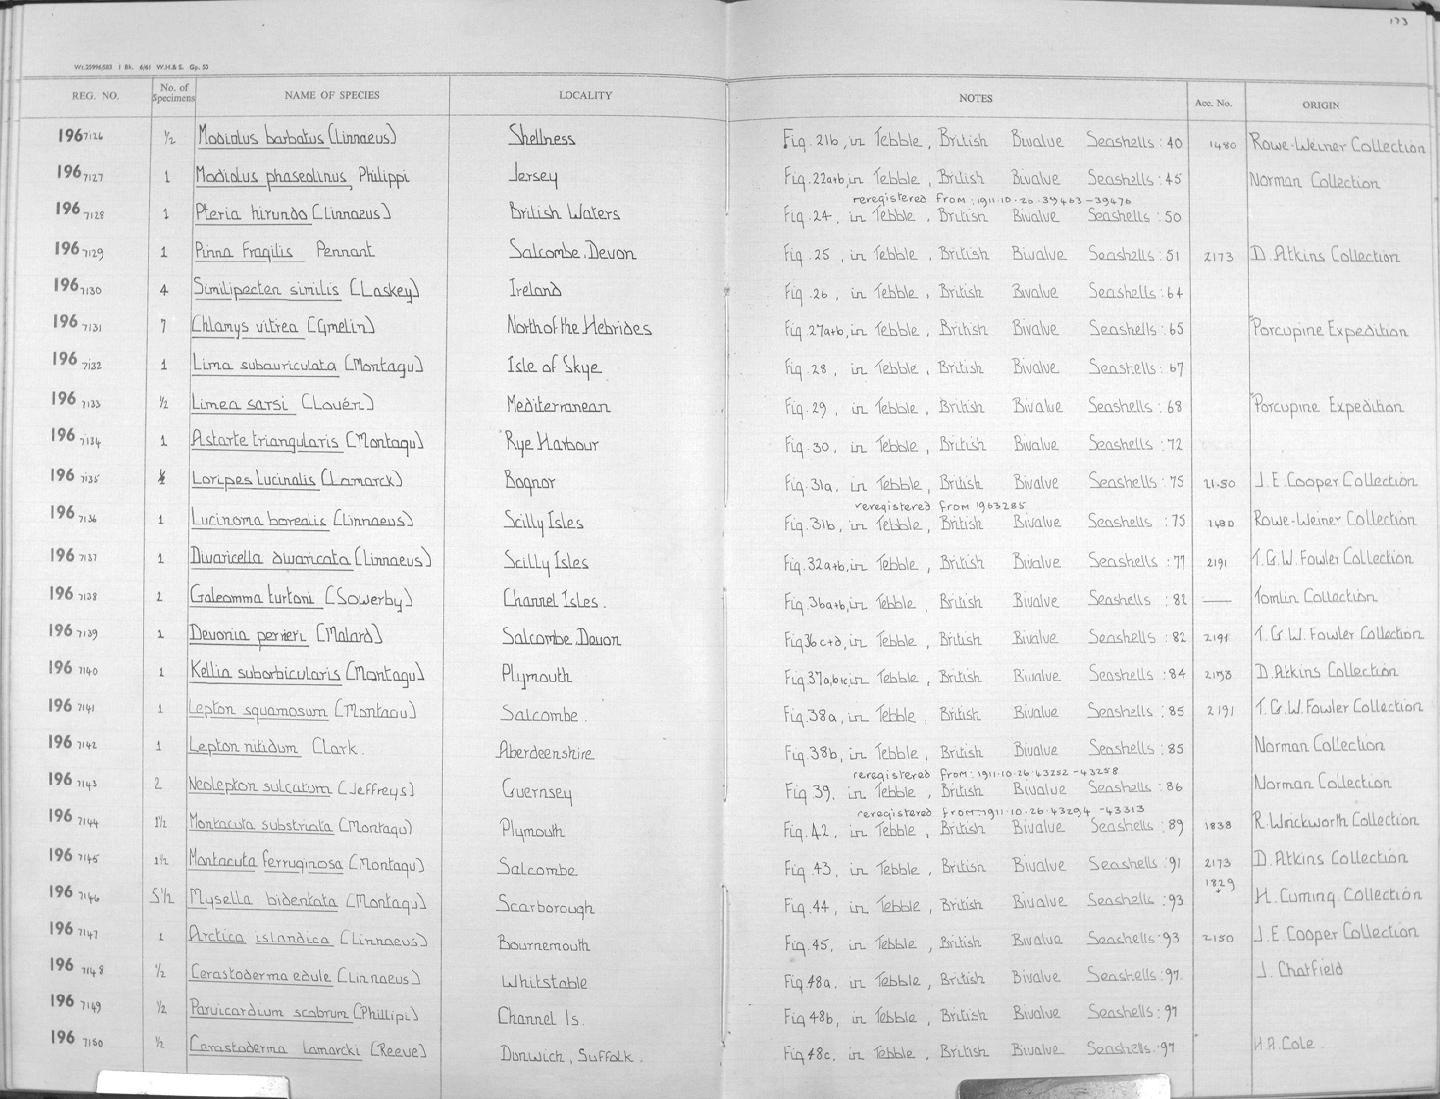 173
Wt.25996/583 1 Bk. 6/61 W.H.& S. Gp. 53
REG. NO. No. of Specimens NAME OF SPECIES LOCALITY NOTES Acc. No. ORIGIN
1967126 ½ Modiolus barbatus (Linnaeus) Shellness Fig. 21b, in Tebble, British Bivalve Seashells: 40 1480 Rowe-Weiner Collection
1967127 1 Modiolus phaseolinus, Philippi Jersey Fig. 22a+b, in Tebble, British Bivalve Seashells: 45 Norman Collection
reregistered from: 1911.10.26.39463-39476
1967128 1 Pteria hirundo (Linnaeus) British Waters Fig. 24, in Tebble, British Bivalve Seashells: 50
1967129 1 Pinna Fragilis Pennant Salcombe, Devon Fig. 25, in Tebble, British Bivalve Seashells: 51 2173 D. Atkins Collection
1967130 4 Similipecten similis (Laskey) Ireland Fig. 26, in Tebble, British Bivalve Seashells: 64
1967131 7 Chlamys vitrea (Gmelin) North of the Hebrides Fig. 27a+b, in Tebble, British Bivalve Seashells: 65 "Porcupine Expedition
1967132 1 Lima subauriculata (Montagu) Isle of Skye Fig. 28, in Tebble, British Bivalve Seashells: 67
1967133 ½ Limea sarsi (Lovén) Mediterranean Fig. 29, in Tebble, British Bivalve Seashells: 68 "Porcupine Expedition
1967134 1 Astarte triangularis (Montagu) Rye Harbour Fig. 30, in Tebble, British Bivalve Seashells: 72
1967135 ½ Loripes lucinalis (Lamarck) Bognor Fig. 31a, in Tebble, British Bivalve Seashells: 75 2150 J. E. Cooper Collection
reregistered from 1963285
1967136 1 Lucinoma borealis (Linnaeus) Scilly Isles Fig. 31b, in Tebble, British Bivalve Seashells: 75 1480 Rowe-Weiner Collection
1967137 1 Divaricella divaricata (Linnaeus) Scilly Isles Fig. 32a+b, in Tebble, British Bivalve Seashells: 77 2191 T. G. W. Fowler Collection
1967138 2 Galeomma turtoni (Sowerby) Channel Isles. Fig. 36a+b, in Tebble, British Bivalve Seashells: 82 — Tomlin Collection
1967139 1 Devonia perrieri (Malard) Salcombe, Devon Fig 36c+d, in Tebble, British Bivalve Seashells: 82 2191 T. G. W. Fowler Collection
1967140 1 Kellia suborbicularis (Montagu) Plymouth Fig. 37a,b+c, in Tebble, British Bivalve Seashells: 84 D. Atkins Collection
1967141 1 Lepton squamosum (Montagu) Salcombe. Fig. 38a, in Tebble British Bivalve Seashells: 85 2191 T. G. W. Fowler Collection
1967142 1 Lepton nitidum Clark. Aberdeenshire Fig. 38b, in Tebble, British Bivalve Seashells: 85 Norman Collection
reregistered from: 1911.10.26.43252-43258
1967143 2 Neolepton sulcatum (Jeffreys) Guernsey Fig. 39, in Tebble, British Bivalve Seashells: 86 Norman Collection
reregistered from: 1911.10.26.43294-43313
1967144 1½ Montacuta substriata (Montagu) Plymouth Fig. 42, in Tebble, British Bivalve Seashells: 89 1838 R. Winckworth Collection
1967145 1½ Montacuta ferruginosa (Montagu) Salcombe Fig. 43, in Tebble, British Bivalve Seashells: 91 2173 D. Atkins Collection
1967146 5½ Mysella bidentata (Montagu) Scarborough Fig. 44, in Tebble, British Bivalve Seashells: 93 1829 H. Cuming Collection
1967147 1 Arctica islandica (Linnaeus) Bournemouth Fig. 45, in Tebble, British Bivalve Seashells: 93 2150 J. E. Cooper Collection
1967148 ½ Cerastoderma edule (Linnaeus) Whitstable Fig. 48a, in Tebble, British Bivalve Seashells: 97. J. Chatfield
1967149 ½ Parvicardium scabrum (Phillipi) Channel Is. Fig 48b, in Tebble, British Bivalve Seashells: 97
1967150 ½ Cerastoderma lamarcki (Reeve) Dunwich, Suffolk. Fig 48c, in Tebble, British Bivalve Seashells: 97 H. A. Cole